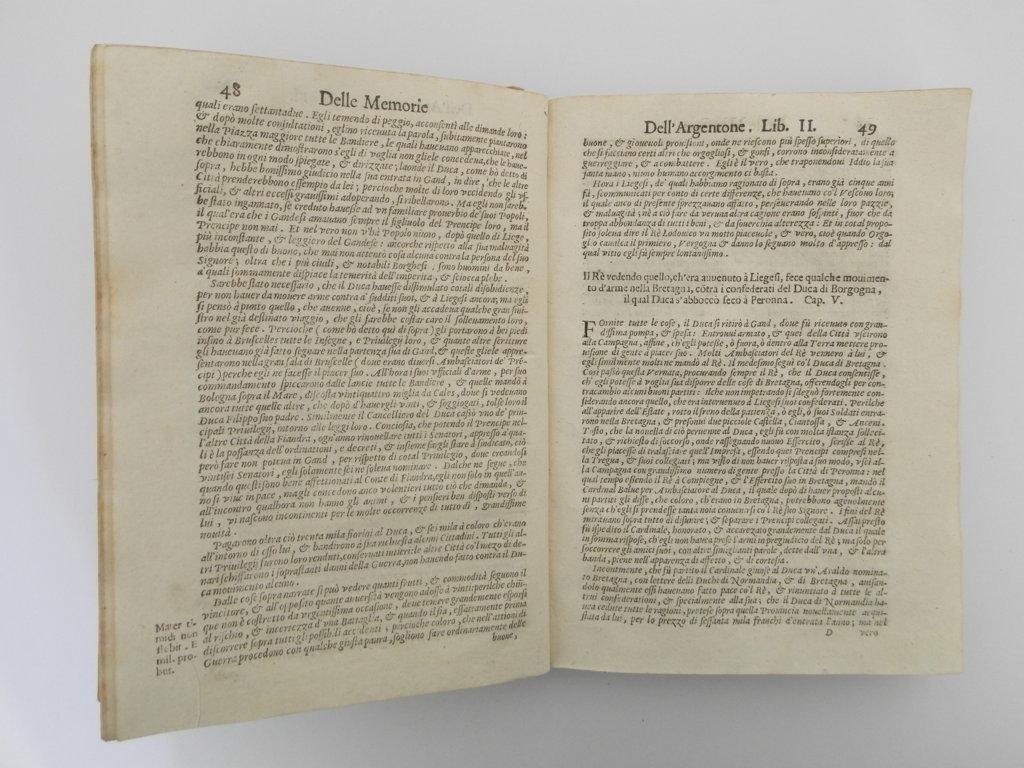 48
Delle Memorie
quali erano settantadue. Egli temendo di peggio, acconsentì alle dimande loro:
& dopò molte consultationi, eglino riceuuta la parola, subitamente piantarono
nella Piazza maggiore tutte le Bandiere, le quali haueuano apparecchiate, nel
che chiaramente dimostrarono s'egli di voglia non gliele concedeua, che le haue-
rebbono in ogni modo spiegate, & dirizzate; laonde il Duca, come hò detto di
sopra, hebbe bonissimo giudicio nella sua entrata in Gand, in dire, 'che le altre
Città prenderebbono essempio da lei; percioche molte di loro vccidendo gli vf-
ficiali, & altri eccessi grauissimi adoperando, si ribellarono. Ma egli non sareb-
be stato ingannato, se creduto hauesse ad vn familiare prouerbio de' suoi Popoli,
il qual'era che i Gandesi amauano sempre il figliuolo del Prencipe loro, ma il
Prencipe non mai. Et nel vero non v'hà Popolo niuno, dopò quello di Liege,
più inconstante, & leggiero del Gandese: ancorche rispetto alla sua maluagità
habbia questo di buono, che mai non attentò cosa alcuna contra la persona del suo
Signore; oltra che i più ciuili, & notabili Borghesi, sono huomini da bene,
a' quali sommamente dispiace la temerità dell'imperita, & sciocca plebe.
Sarebbe stato necessario, che il Duca hauesse dissimulato cotali disobidienze,
per non hauer da mouere arme contra a' sudditi suoi, & à Liegesi ancora, ma egli
si pensò à punto quello, che auenne, cioè, se non gli accadea qualche gran sini-
stro nel già destinato viaggio, che gli farebbe costar caro il solleuamento loro,
come pur fece. Percioche (come hò detto quì di sopra) gli portarono à bei piedi
insino à Brusselles tutte le Insegne, e Priuilegij loro, & quante altre scritture
gli haueuano già fatto segnare nella partenza sua di Gand, & queste gliele appre-
sentarono nella gran sala di Brusselle (doue erano diuersi Ambasciatori de' Pré-
cipi) perche egli ne facesse il piacer suo. All'hora i suoi vfficiali d'arme, per suo
commandamento spiccarono dalle lancie tutte le Bandiere, & quelle mandò à
Bologna sopra il Mare, discosta vintiquattro miglia da Cales, doue si vedeuano
ancora tutte quelle altre, che dopò d'hauergli vinti, & soggiogati, tolse loro il
Duca Filippo suo padre. Similmente il Cancelliero del Duca cassò vno de' prin-
cipali Priuilegij, intorno alle leggi loro. Conciosia, che potendo il Prencipe nel-
l'altre Città della Fiandra, ogn'anno rinouellare tutti i Senatori, appresso a' qua-
li è la possanza dell'ordinationi, e decreti, & insieme fargli stare à sindicato, ciò
però fare non poteua in Gand, per rispetto di cotal Priuilegio, doue creandosi
vintisei Senatori, egli solamente sei ne soleua nominare. Dalche ne segue, che
quando questi sono bene affettionati al Conte di Fiandra, egli non solo in quell'an-
no si viue in pace, ma gli concedono anco volentieri tutto ciò che dimanda, &
all'incontro qualhora non hanno gli animi, & i pensieri ben disposti verso di
lui, vi nascono incontinenti per le molte occorrenze di tutto dì, grandissime
nouità.
Pagarono oltra ciò trenta mila fiorini al Duca, & sei mila à coloro ch'erano
all'intorno di esso lui, & bandirono à sua richiesta alcuni Cittadini. Tutti gli al-
tri Priuilegij furono loro renduti, conseruati intieri: le altre Città co'l mezo di de-
nari schiffarono i soprastanti danni della Guerra, non hauendo fatto contra il Du-
ca mouimento alcuno.
Dalle cose sopra narrate si può vedere quanti frutti, & commodità seguono il
vincitore, & all'opposito quante auuersità vengono adosso à vinti: perilche chiũ-
que non è costretto da vrgentissima occasione, deue temere grandemente esporsi
al rischio, & incertezza d'vna Battaglia, & quando il sia, essattamente prima
discorrere sopra tutti gli possibili accidenti; percioche coloro, che nell'attioni di
Guerra procedono con qualche giusta paura, sogliono fare ordinariamente delle
buone,
Mater ti-
midi non
flebit. E-
mil. pro-
bus.
Dell'Argentone. Lib. II.
49
buone, & gioueuoli prouisioni, onde ne riescono più spesso superiori, di quello
che si facciano certi altri che orgogliosi, & gonfi, corrono inconsideratamente a
guerreggiare, & a combattere. Egli è il vero, che traponendoui Iddio la sua
santa mano, niuno humano accorgimento ci basta.
Hora i Liegesi, de' quali habbiamo ragionato di sopra, erano già cinque anni
fà, scommunicati per conto di certe differenze, che haueuano co'l Vescouo loro,
il quale anco di presente sprezzauano affatto, perseuerando nelle loro pazzie,
& maluagità; nè a ciò fare da veruna altra cagione erano sospinti, fuor che da
troppa abbondanza di tutti i beni, & da souerchia alterezza: Et in cotal propo-
sito soleua dire il Rè Lodouico vn motto piaceuole, & vero, cioè quando Orgo-
glio caualca il primiero, Vergogna & danno lo seguano molto d'appresso: dal
qual vitio egli fù sempre lontanissimo.
Il Rè vedendo quello, ch'era auuenuto à Liegesi, fece qualche mouimen-
to d'arme nella Bretagna, cõtra i confederati del Duca di Borgogna,
il qual Duca s'abboccò seco à Peronna. Cap. V.
FOrnite tutte le cose, il Duca si ritirò à Gand, doue fù riceuuto con gran-
dissima pompa, & spesa: Entrouui armato, & quei della Città vscirono
alla Campagna, affine, ch'egli potesse, ò fuora, ò dentro alla Terra mettere pro-
uisione di gente à piacer suo. Molti Ambasciatori del Rè vennero à lui, &
egli similmente molti ne mandò al Rè. Il medesimo seguì co'l Duca di Bretagna.
Così passò questa Vernata, procurando sempre il Rè, che il Duca consentisse,
ch'egli potesse à voglia sua disporre delle cose di Bretagna, offerendogli per con-
tracambio alcuni buoni partiti: il che non impetrando si sdegnò fortemente con-
siderando ancora quello, che era interuenuto à Liegesi suoi confederati. Perilche
all'apparire dell'Estate, rotto il freno della patienza, ò egli, ò suoi Soldati entra-
rono nella Bretagna, & presonui due picciole Castella, Ciantossa, & Anceni.
Tosto, che la nouella di ciò peruenne al Duca, egli fù con molta istanza solleci-
tato, & richiesto di soccorso, onde rassegnando nuouo Essercito, scrisse al Rè,
che gli piacesse di tralasciare quell'Impresa, essendo quei Prencipi compresi nel-
la Tregua, & suoi collegati; ma visto di non hauer risposta à suo modo, vscì al-
la Campagna con grandissimo numero di gente presso la Città di Peronna: nel
qual tempo essendo il Rè à Compiegne, & l'Essercito suo in Bretagna, mandò il
Cardinal Balue per Ambasciatore al Duca, il quale dopò di hauer proposti alcu-
ni partiti gli disse, che coloro, ch'erano in Bretagna, potrebbono ageuolmente
senza ch'egli si prendesse tanta noia conuenirsi co'l Rè suo Signore. I fini del Rè
mirauano sopra tutto di disunire, & separare i Prencipi collegati. Assai presto
fù ispedito il Cardinale, honorato, & accarezzato grandemente dal Duca il quale
in somma rispose, ch'egli non hauea prese l'armi in pregiudicio del Rè; ma solo per
soccorrere gli amici suoi, con altre simiglianti parole, dette dall'vna, & l'altra
banda, piene nell'apparenza di affetto, & di cortesia.
Incontinente, che fù partito il Cardinale giunse al Duca vn'Araldo nomina-
to Bretagna, con lettere delli Duchi di Normandia, & di Bretagna, auisan-
dolo qualmente essi haueuano fatto pace co'l Rè, & rinuntiato à tutte le al-
tre confederationi, & specialmente alla sua; che il Duca di Normandia ha-
uea cedute tutte le ragioni, pretese sopra quella Prouincia nouellamente acqui-
stata da lui, per lo prezzo di sessanta mila franchi d'entrata l'anno; ma nel
D
vero